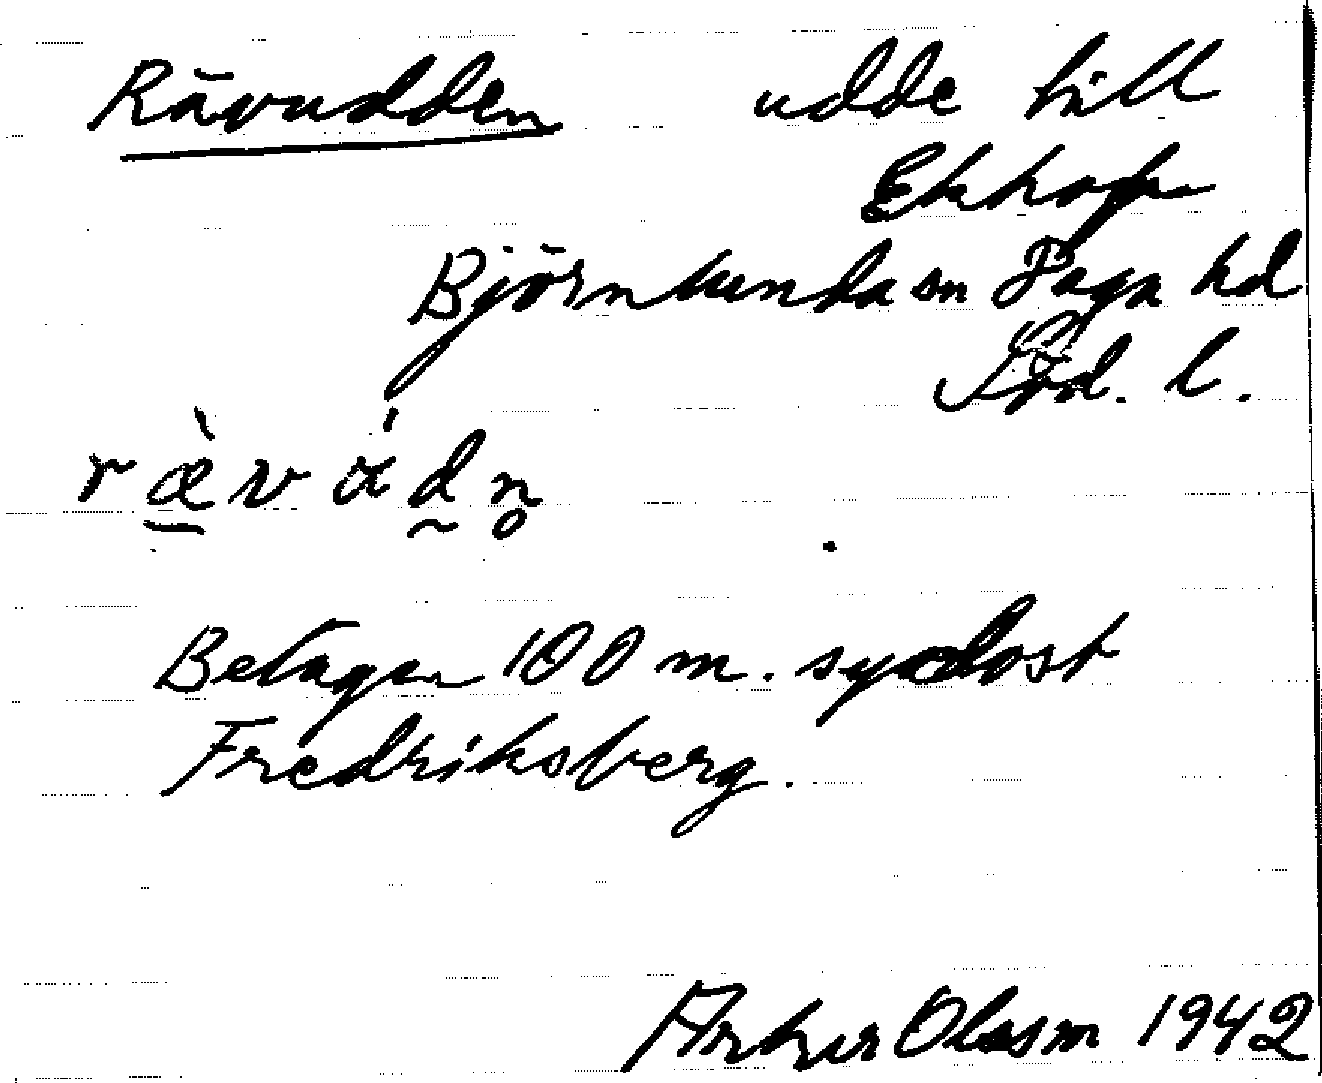 Rävudden udde till
Ekhof
Björnlunda sn Daga hd
Söd. l.
r æ̀ v á d n̥
Belägen 100 m. sydost
Fredriksberg.
Arthur Olsson 1942